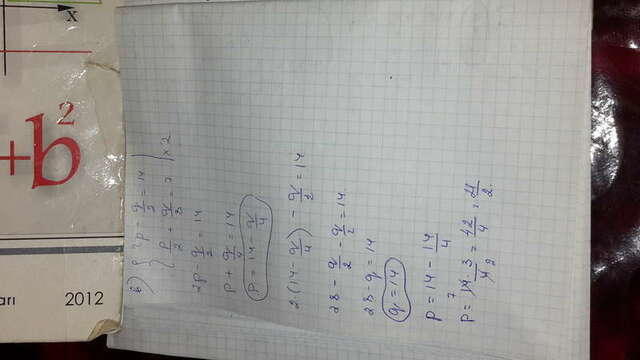 x
+b²
arı 2012
b) { 2p - q/2 = 14
p/2 + q/8 = 7 | x 2
2p - q/2 = 14
p + q/4 = 14
p = 14 - q/4
2·(14 - q/4) - q/2 = 14
28 - q/2 - q/2 = 14
28 - q = 14
q = 14
p = 14 - 14/4
7 2
p = 14·3/4 = 42/4 = 21/2